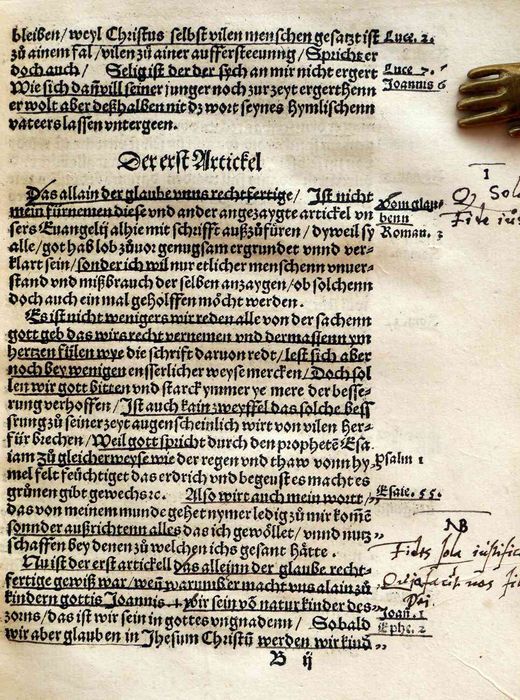 bleiben/ weyl Christus selbst vilen menschen gesatzt ist Luce. 2.
zů ainem fal/ vilen zů ainer auffersteeunng/ Spricht er
doch auch/ Selig ist der der sych an mir nicht ergert Luce 7.
Wie sich dañ vill seiner junger noch zur zeyt ergerthenn Joannis 6
er wolt aber deßhalben nit dz wort seynes hymlischenn
vateers lassen vntergeen.
Der erst Artickel
Das allain der glaube vnns rechtfertige/ Ist nicht
mein fürnemen diese vnd ander angezaygte artickel vn Vom glau-
sers Euangelij alhie mit schrifft außzůfüren/ dyweil sy benn
alle/ got hab lob zůuor genugsam ergrundet vnnd ver- Roman. 3
klart sein/ sonder ich wil nur etlicher menschenn vnuer-
stand vnd mißbrauch der selben anzaygen/ ob solchenn
doch auch ein mal geholffen möcht werden.
Es ist nicht wenigers wir reden alle von der sachenn
gott geb das wirs recht vernemen vnd dermassenn ym
hertzen fülen wye die schrifft daruon redt/ lest sich aber
noch bey wenigen eusserlicher weyse mercken/ Doch sol
len wir gott bitten vnd starck ymmer ye mere der besse-
rung verhoffen/ Ist auch kain zweyffel das solche bess
srung zů seiner zeyt augenscheinlich wirt von vilen her-
für brechen/ Weil gott spricht durch den prophetẽ Esa-
iam zů gleicher weyse wie der regen vnd thaw vonn hy Psalm 1
mel felt feüchtiget das erdrich vnd begeust es macht es
grůnen gibt gewechs ꝛc. Also wirt auch mein wortt/ Esaie. 55.
das von meinem munde gehet nymer ledig zů mir komẽ
sonnder außrichtenn alles das ich gewöllet/ vnnd nutz
schaffen bey denen zů welchen ichs gesant hätte.
Nu ist der erst artickell das alleinn der glaube recht-
fertige gewiß war/ weñ warumb er macht vns alain zů
kindern gottis Joannis 1 wir sein võ natur kinder des
zorns/ das ist wir sein in gottes vngnadenn/ Sobald Joañ. 1
wir aber glauben in Jhesum Christũ werden wir kinď Ephe. 2
B ij
I
Sola
Fide
NB
Fides sola iustific
nos